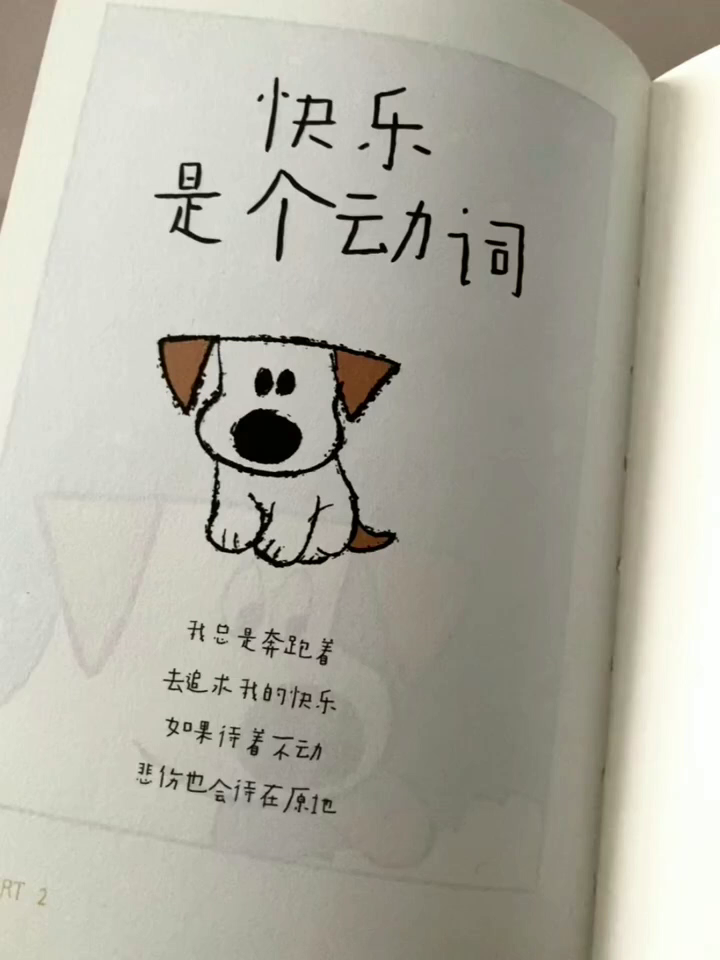 快乐
是个动词
我总是奔跑着
去追求我的快乐
如果待着不动
悲伤也会待在原地
RT 2